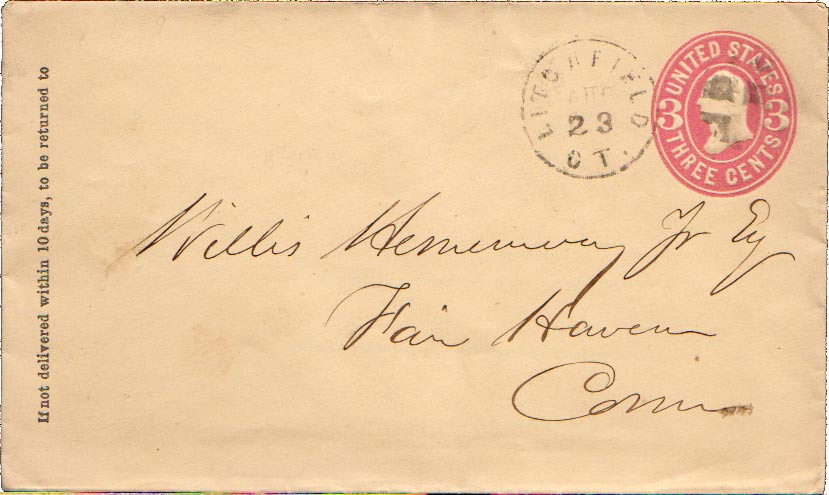 If not delivered within 10 days, to be returned to
LITCHFIELD
AUG
23
CT.
UNITED STATES
3 3
THREE CENTS
Willis Hemenway Jr Esq
Fair Haven
Conn